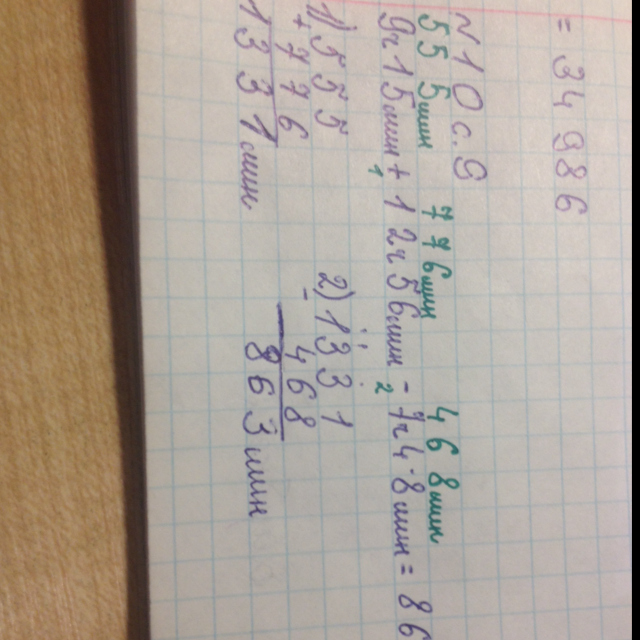 = 34 986
√10 c. 6
555 мин 776 мин 468 мин
9ч 15 мин + 12ч 56 мин - 7ч 48 мин = 86
1 2
1) 555
+ 776
1331 мин
2) 1331
- 468
863 мин